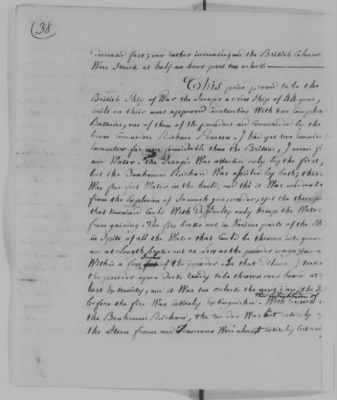 (38)
increased fast; our water increased and the British Colours
Were Struck at half an hour past ten o'clock
This prize proved to be the
British Ship of War the Serapis a new Ship of 44 guns,
built on their most approved Construction With two Compleat
Batteries, one of them of pounders and Commanded by the
brave Commodore Richard Pearson. I had yet two enemies
to encounter far more formidable than the Britons, I mean fire
and Water. The Serapis Was attacked only by the first,
but the Bonhomme Richard Was assailed by both; there
Was five feet Water in the hould, and tho it Was moderate
from the Explosion of so much gunpowder, yet the three pumps
that remained Could With difficulty only keep the Water
from gaining. The fire broke out in Various parts of the Ship
in Spite of all the Water that Could be thrown
at Length broke out as low as the powder magazine &
Within a few inches of the powder. In that dilemma I took
the powder upon deck ready to be thrown over board at the
last Extremity, and it Was ten o'clock the next day the 24
before the fire Was intirely Extinguished. With respect to the Situation of
the Bonhomme Richard, the rudder Was Cut intirely off
the Stern frame and Transoms Were almost intirely Cut away